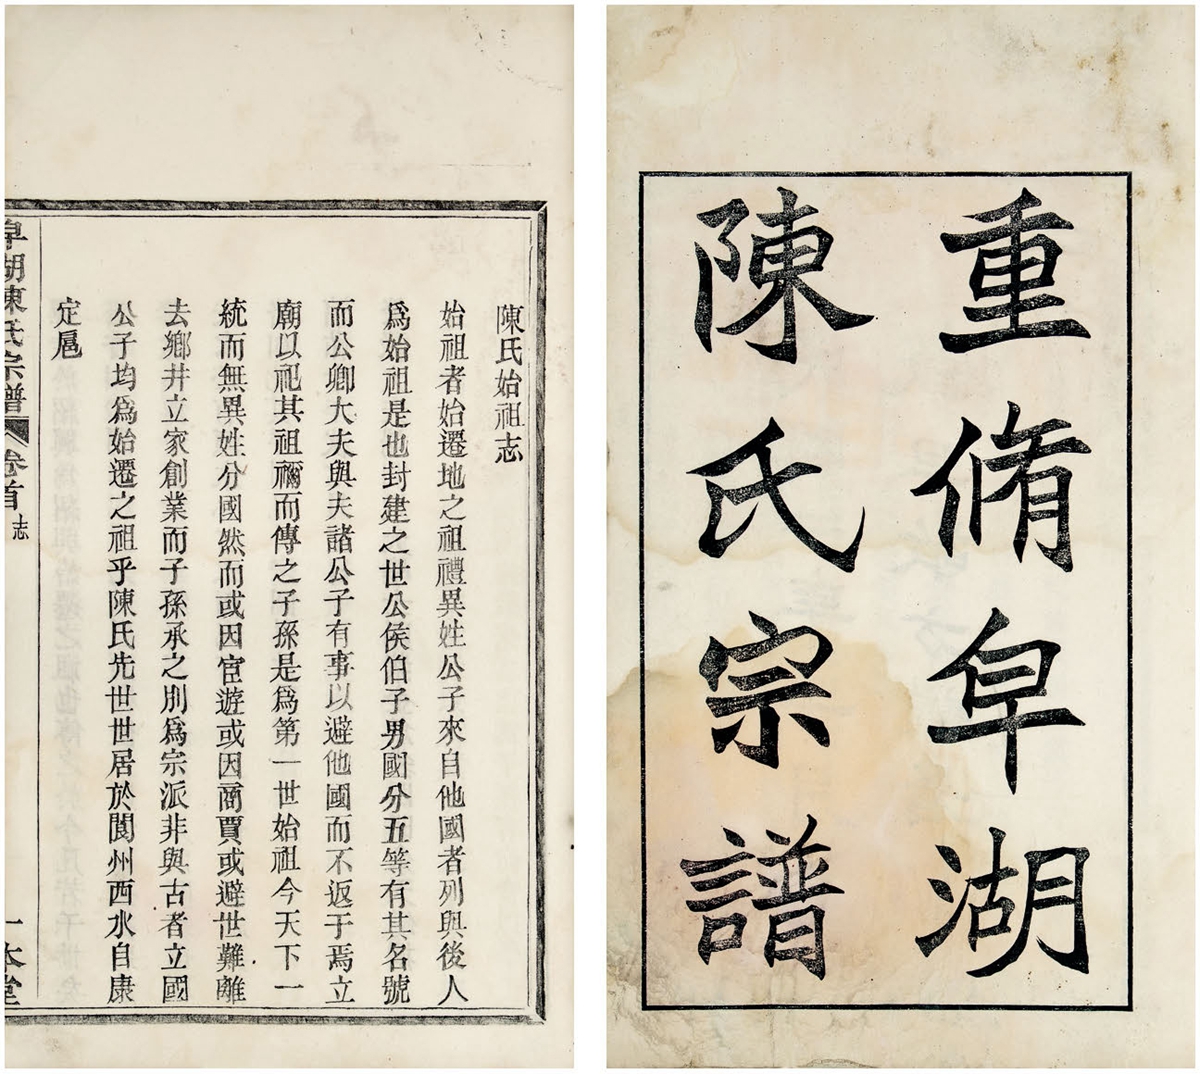 重脩皁湖
陳氏宗譜
陳氏始祖志
始祖者始遷地之祖禮異姓公子來自他國者列與後人
爲始祖是也封建之世公侯伯子男國分五等有其名號
而公卿大夫與夫諸公子有事以避他國而不返于焉立
廟以祀其祖禰而傳之子孫是爲第一世始祖今天下一
統而無異姓分國然而或因宦遊或因商賈或避世難離
去鄉井立家創業而子孫承之別爲宗派非與古者立國
公子均爲始遷之祖乎陳氏先世世居於閬州西水自康
定扈
皁湖陳氏宗譜 卷首 志 一本堂